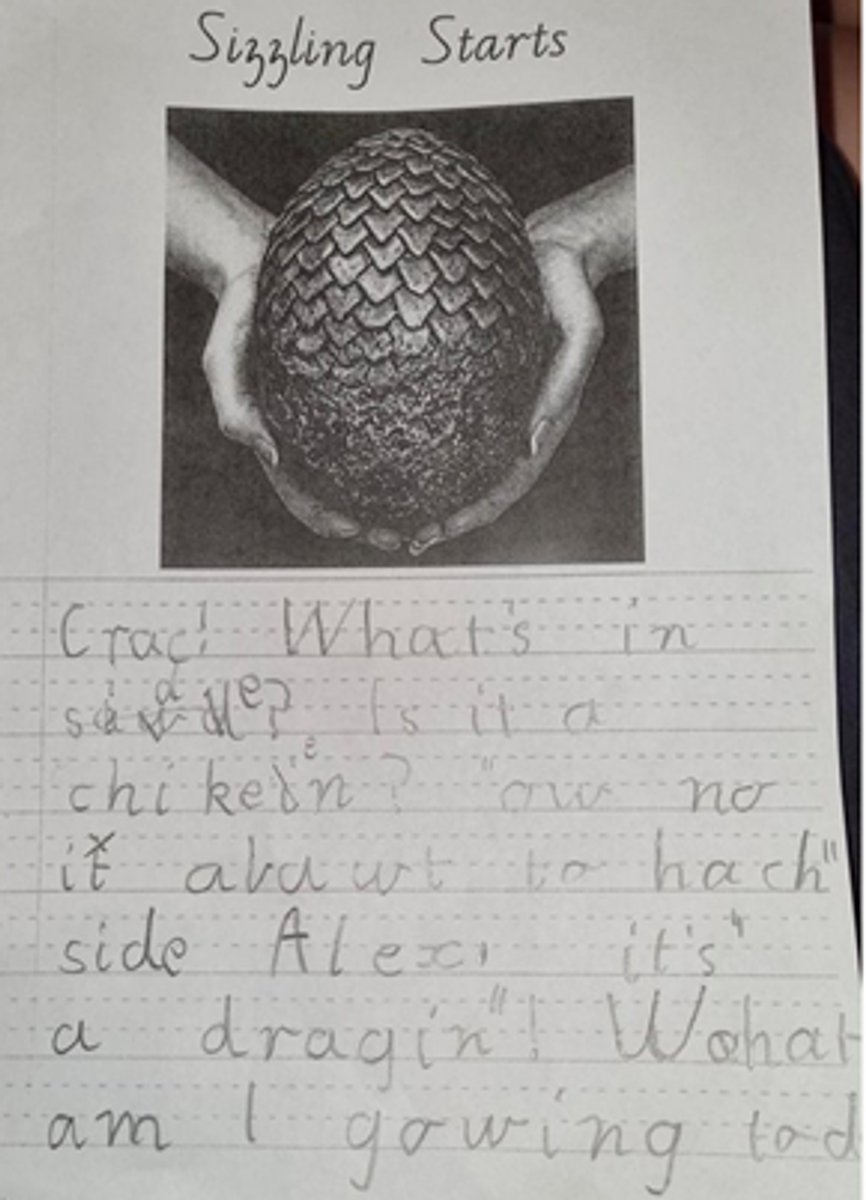 Sizzling Starts
Crac! What's in
Is it a
chiken? "ow no
it abawt to hach"
side Alex, it's"
a dragin"! What
am I gowing tod